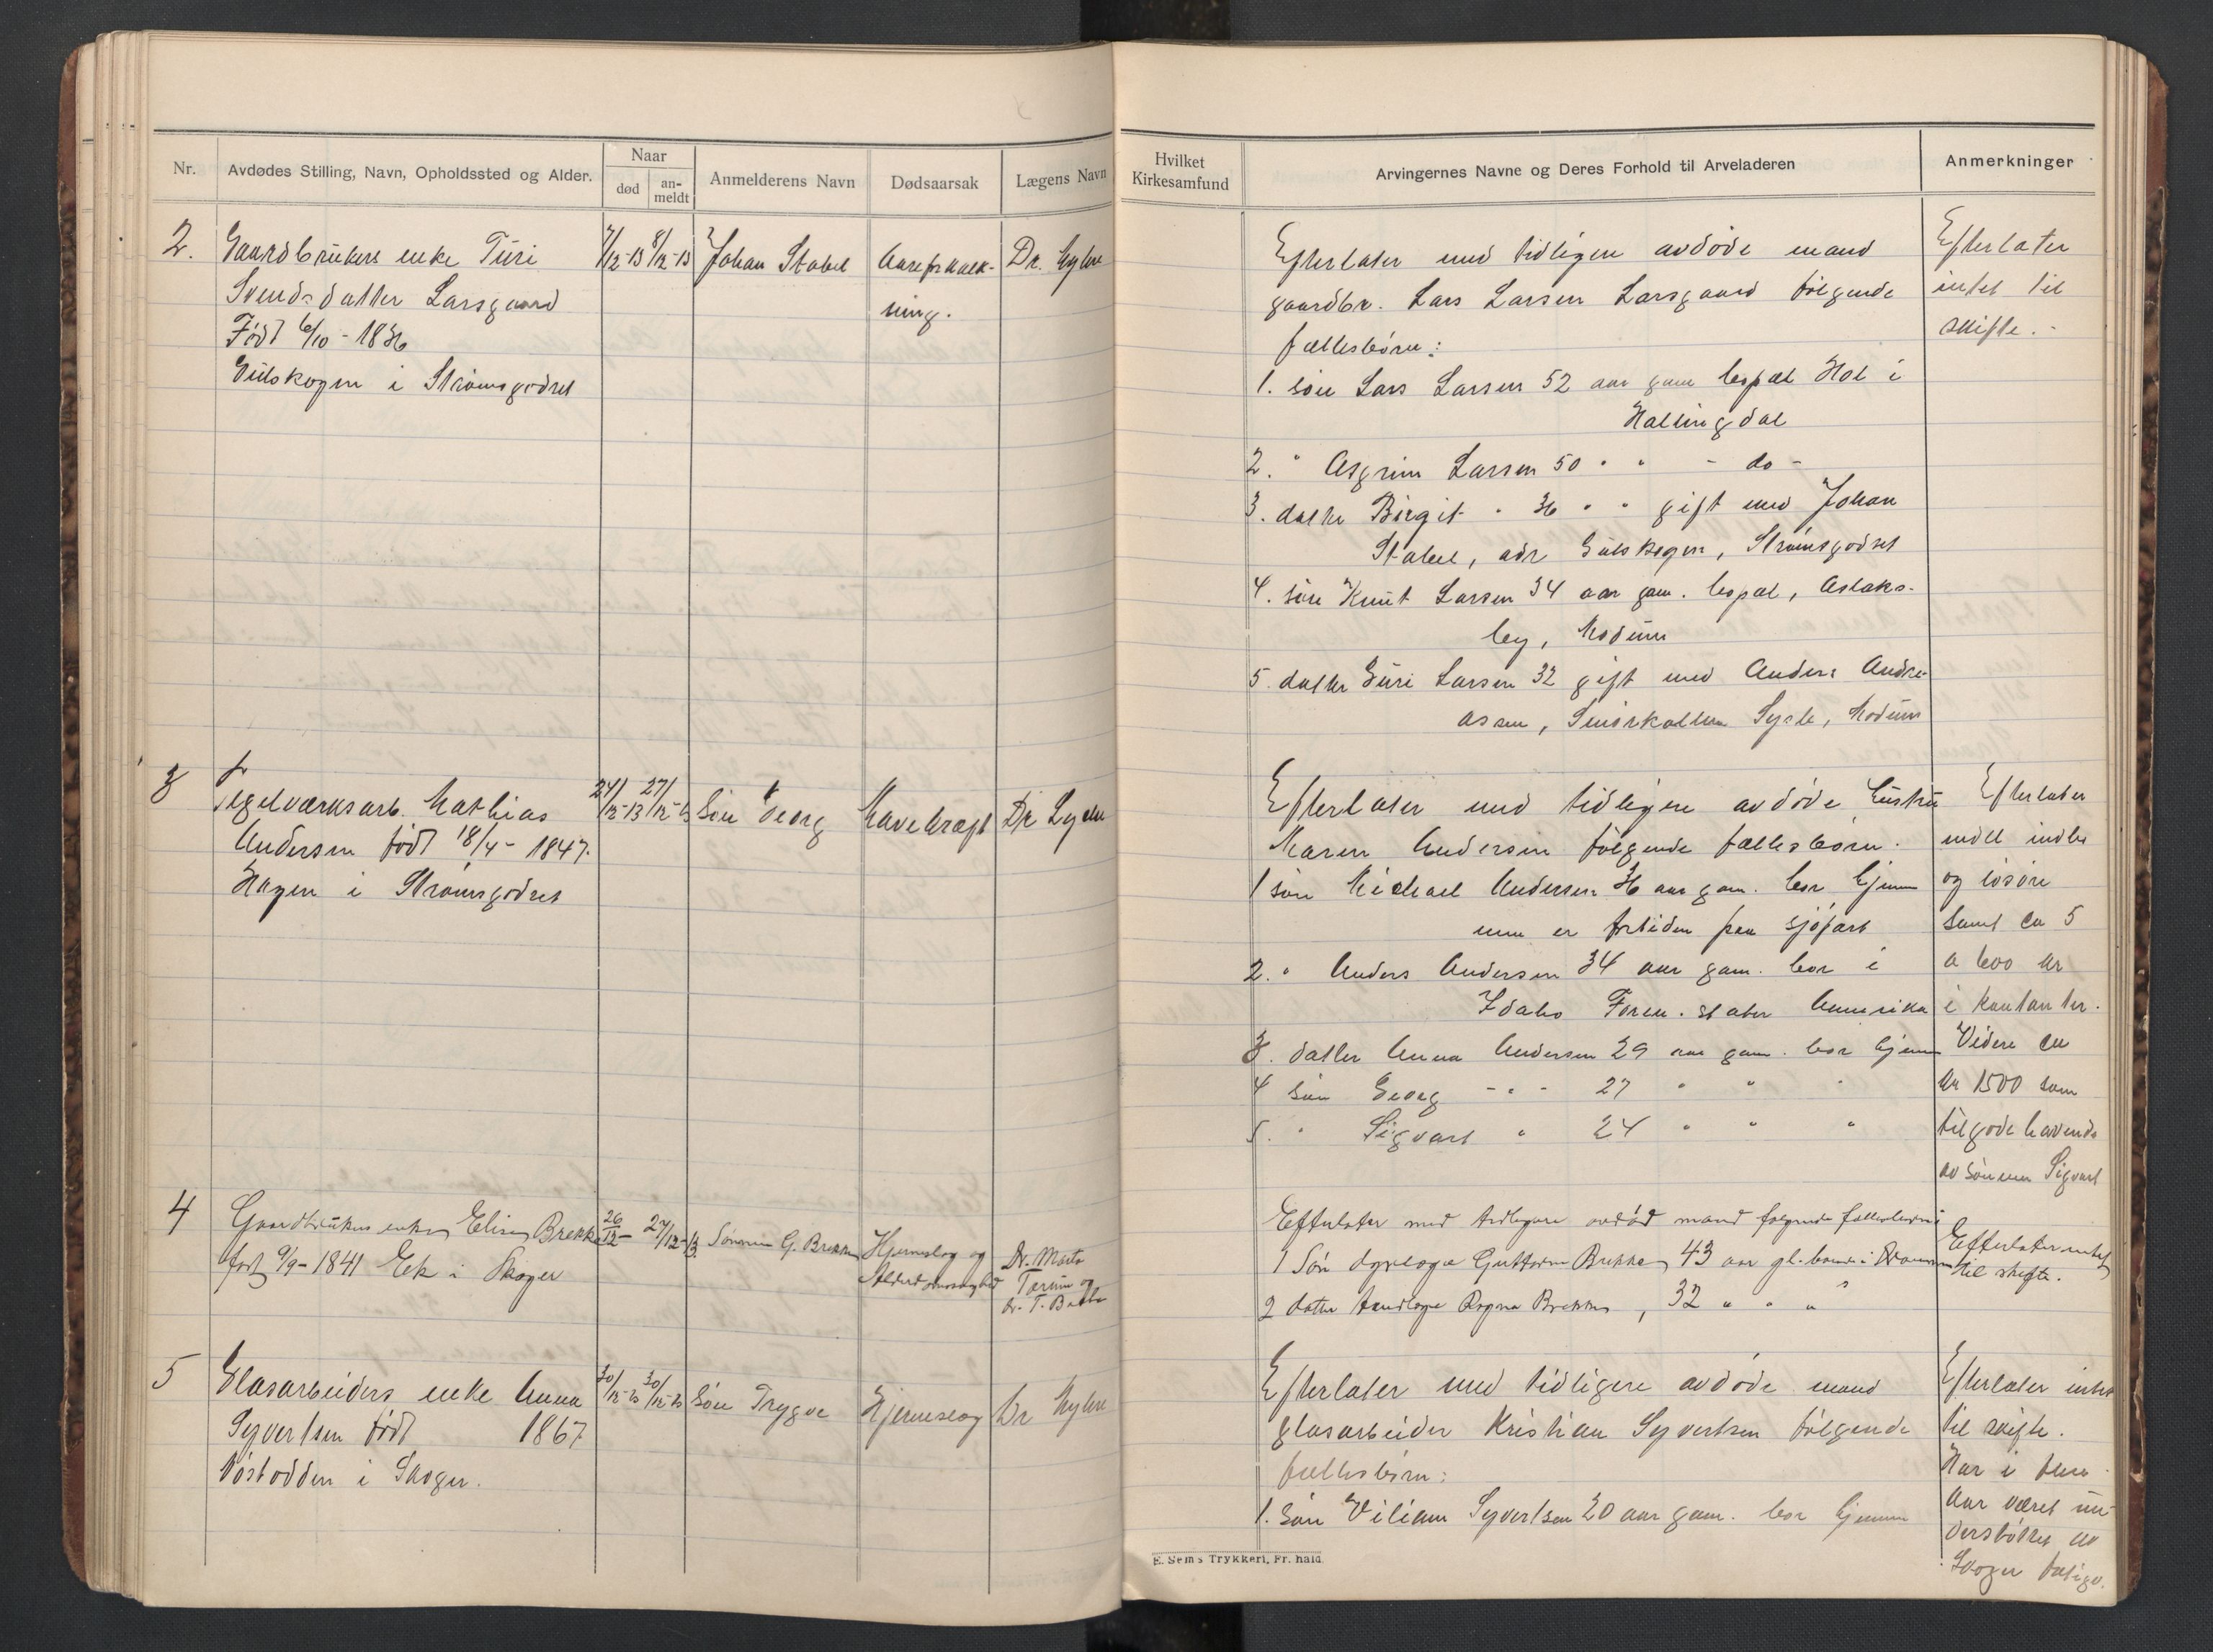 Nr.
Avdødes Stilling, Navn, Opholdssted og Alder.
Naar
død
an-
meldt
Anmelderens Navn
Dødsaarsak
Lægens Navn
Hvilket
Kirkesamfund
Arvingernes Navne og Deres Forhold til Arveladeren
Anmerkninger
2. Gaardbrukers enke Turi 7/12-13 8/12-13 Johan Stabel Aareforkalk- Dr.
Svendsdatter Larsgaard ning.
Født 6/10-1836
Gulskogen i Strømsgodset
Efterlater med tidligere avdøde mand
gaardbr. Lars Larsen Larsgaard følgende
fællesbørn:
1. søn Lars Larsen 52 aar gam bopæl Hol i
Hallingdal
2. " Asgrim Larsen 50 " " - do -
3. datter Birgit " 36 " " gift med Johan
Stabel, adr Gulskogen, Strømsgodset
4. søn Knut Larsen 34 aar gam. bopæl, Aslaks-
by, Modum
5. datter Guri Larsen 32 gift med Anders Andre-
assen, Snarum, Modum
Efterlater
intet til
skifte.-
3 Tegelværksarb. Mathias 24/12-13 27/12-13 Søn Georg Mavekræft Dr
Andersen født 18/4-1847.
Hagen i Strømsgodset
Efterlater med tidligere avdøde hustru
Maren Andersen følgende fællesbørn.
1 søn Michael Andersen 36 aar gam. bor hjemme
men er fortiden paa sjøfart
2. " Anders Andersen 34 aar gam. bor i
Idaho Foren. stater Amerika
3. datter Anna Andersen 29 aar gam. bor hjemme
4 søn Georg - " - 27 " " "
5. " Sigvart " 24 " " "
Efterlater
endel indbo
og løsøre
samt ca 5
a 600 kr
i kontanter.
Videre ca
kr 1500 som
tilgodehavende
av sønnen Sigvart
4 Gaardbrukers enke Elise Brekke 26/12- 27/12-13 Sønnen G. Brekke Hjerneslag og Dr.
født 9/9-1841 Ek i Skoger Alderdomssvaghed
og
Dr. T.
Efterlater med tidligere avdød mand følgende fællesbørn
1 Søn dyrlæge Guttorm Brekke, 43 aar gl. boende i Drammen
2 datter tandlæge Ragna Brekke, 32 " " "
Efterlater intet
til skifte.
5 Glasarbeiders enke Anna 30/12-13 30/12-13 Søn Trygve Hjerneslag Dr
Syvertsen født 1867
i Skoger.
Efterlater med tidligere avdøde mand
glasarbeider Kristian Syvertsen følgende
fællesbørn:
1. Søn Viliam Syvertsen 20 aar gam. bor hjemme
Efterlater intet
til skifte.
Har i flere
aar været un-
derstøttet av
Skoger fattigv.
E. Sems Trykkeri, Fr. hald.